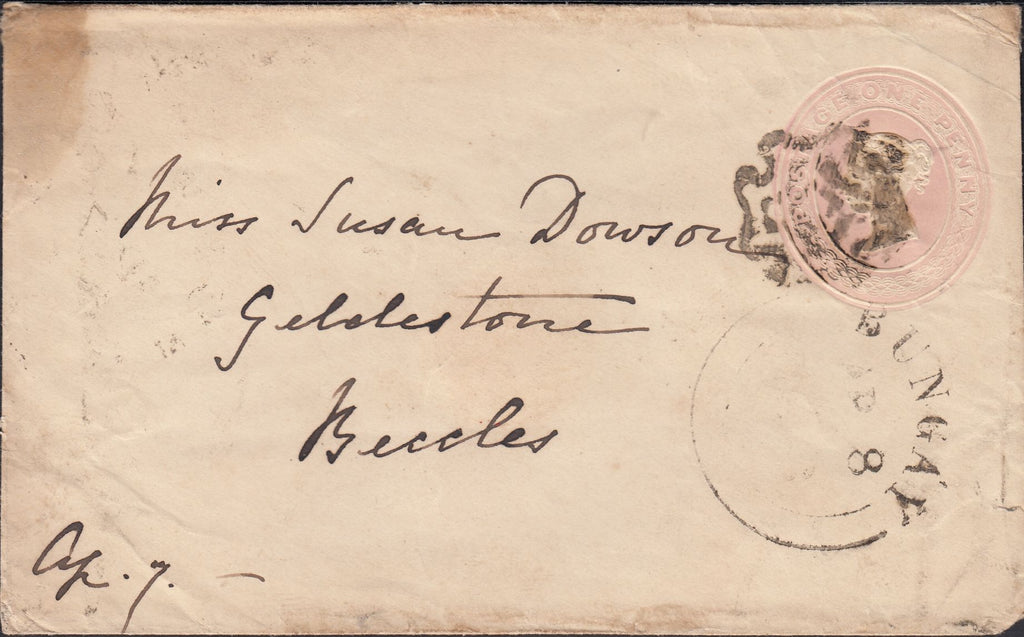 POSTAGE ONE PENNY
Miss Susan Dowson
Geldestone
Beccles
BUNGAY
AP 8
Ap. 7. —